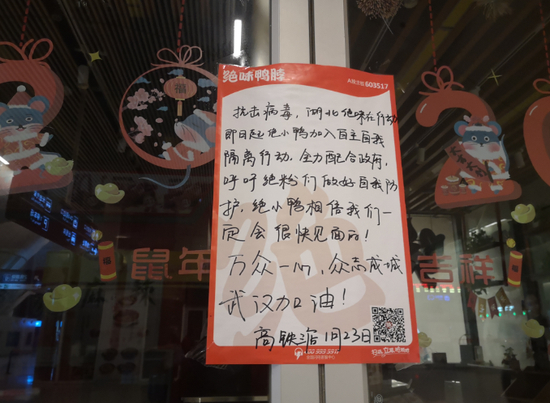 绝味鸭脖
603517
抗击病毒,湖北绝味在行动
即日起绝小鸭加入自主自我
隔离行动,全力配合政府,
呼吁绝粉们做好自我防
护,绝小鸭相信我们一
定会很快见面的!
万众一心,众志成城
武汉加油!
高铁店 1月23日
鼠年
吉祥
福